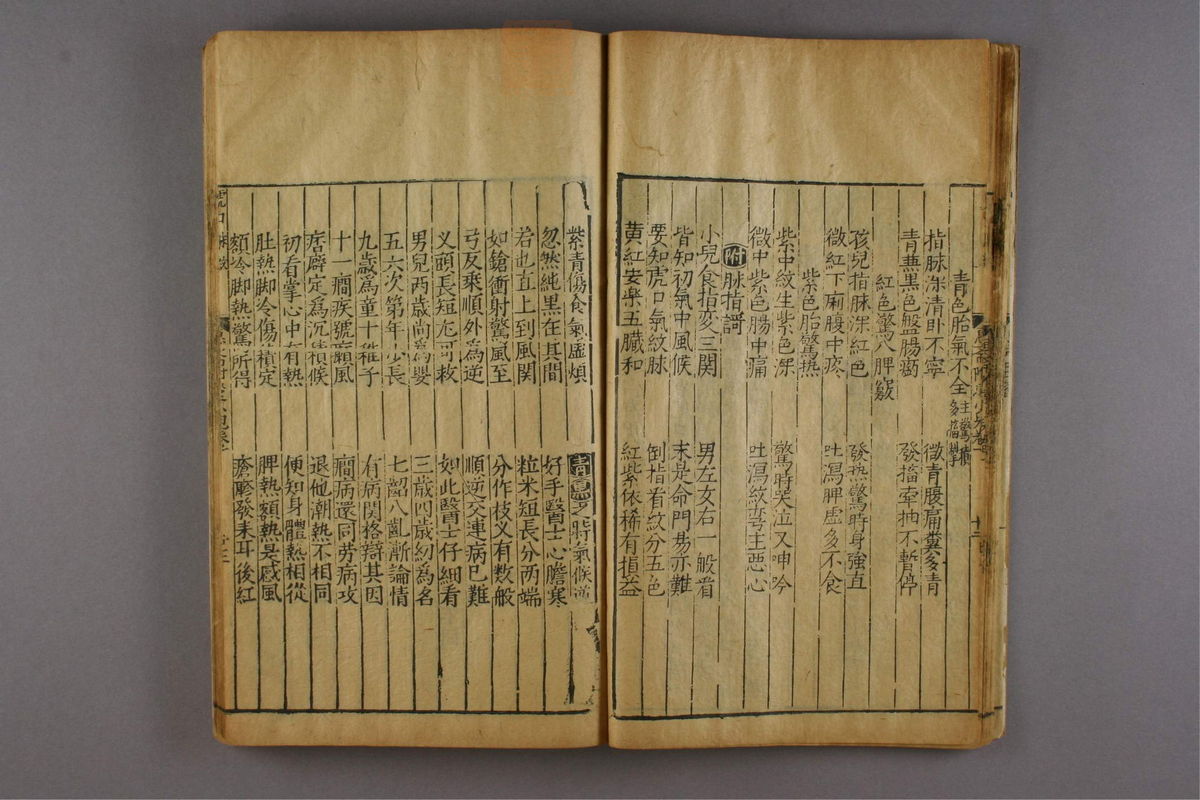 青色胎氣不全
指脉深清卧不寧 微青腹扁糞多青
青兼黑色盤腸痛 發搐牽抽不暫停
紅色驚入脾竅
孩兒指脉深紅色 發热驚時身強直
微紅下痢腹中疼 吐瀉脾虛多不食
紫色胎驚热
紫中紋生紫色深 驚時哭泣又呻吟
微中紫色腸中痛 吐瀉紋弯主惡心
附脉指訶
小兒食指变三関 男左女右一般看
皆知初氣中風候 末是命門易亦難
要知虎口氣紋脉 倒指看紋分五色
黄紅安樂五臓和 紅紫依稀有損益
紫青傷食氣虛煩 時氣候
忽然純黑在其間 好手醫士心膽寒
若也直上到風関 粒米短長分两端
如鎗衝射驚風至 分作枝义有数般
弓反乘順外為逆 順逆交連病已難
义頭長短尤可救 如此醫士仔細看
男兒两歲尚為嬰 三歲四歲幼為名
五六次第年少長 七齠八齔漸論情
九歲為童十稚子 有病関格辯其因
十一癎疾號癲風 癎病還同劳病攻
痞癖定為沉積候 退他潮熱不相同
初看掌心中有熱 便知身體熱相從
肚熱脚冷傷積定 脾熱額熱是感風
額冷脚熱驚所得 瘡疹發来耳後紅